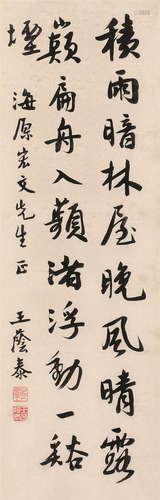 積雨暗林屋晚風晴露
巔扁舟入蘋渚浮動一谿
煙 海原宏文先生正
王蔭泰